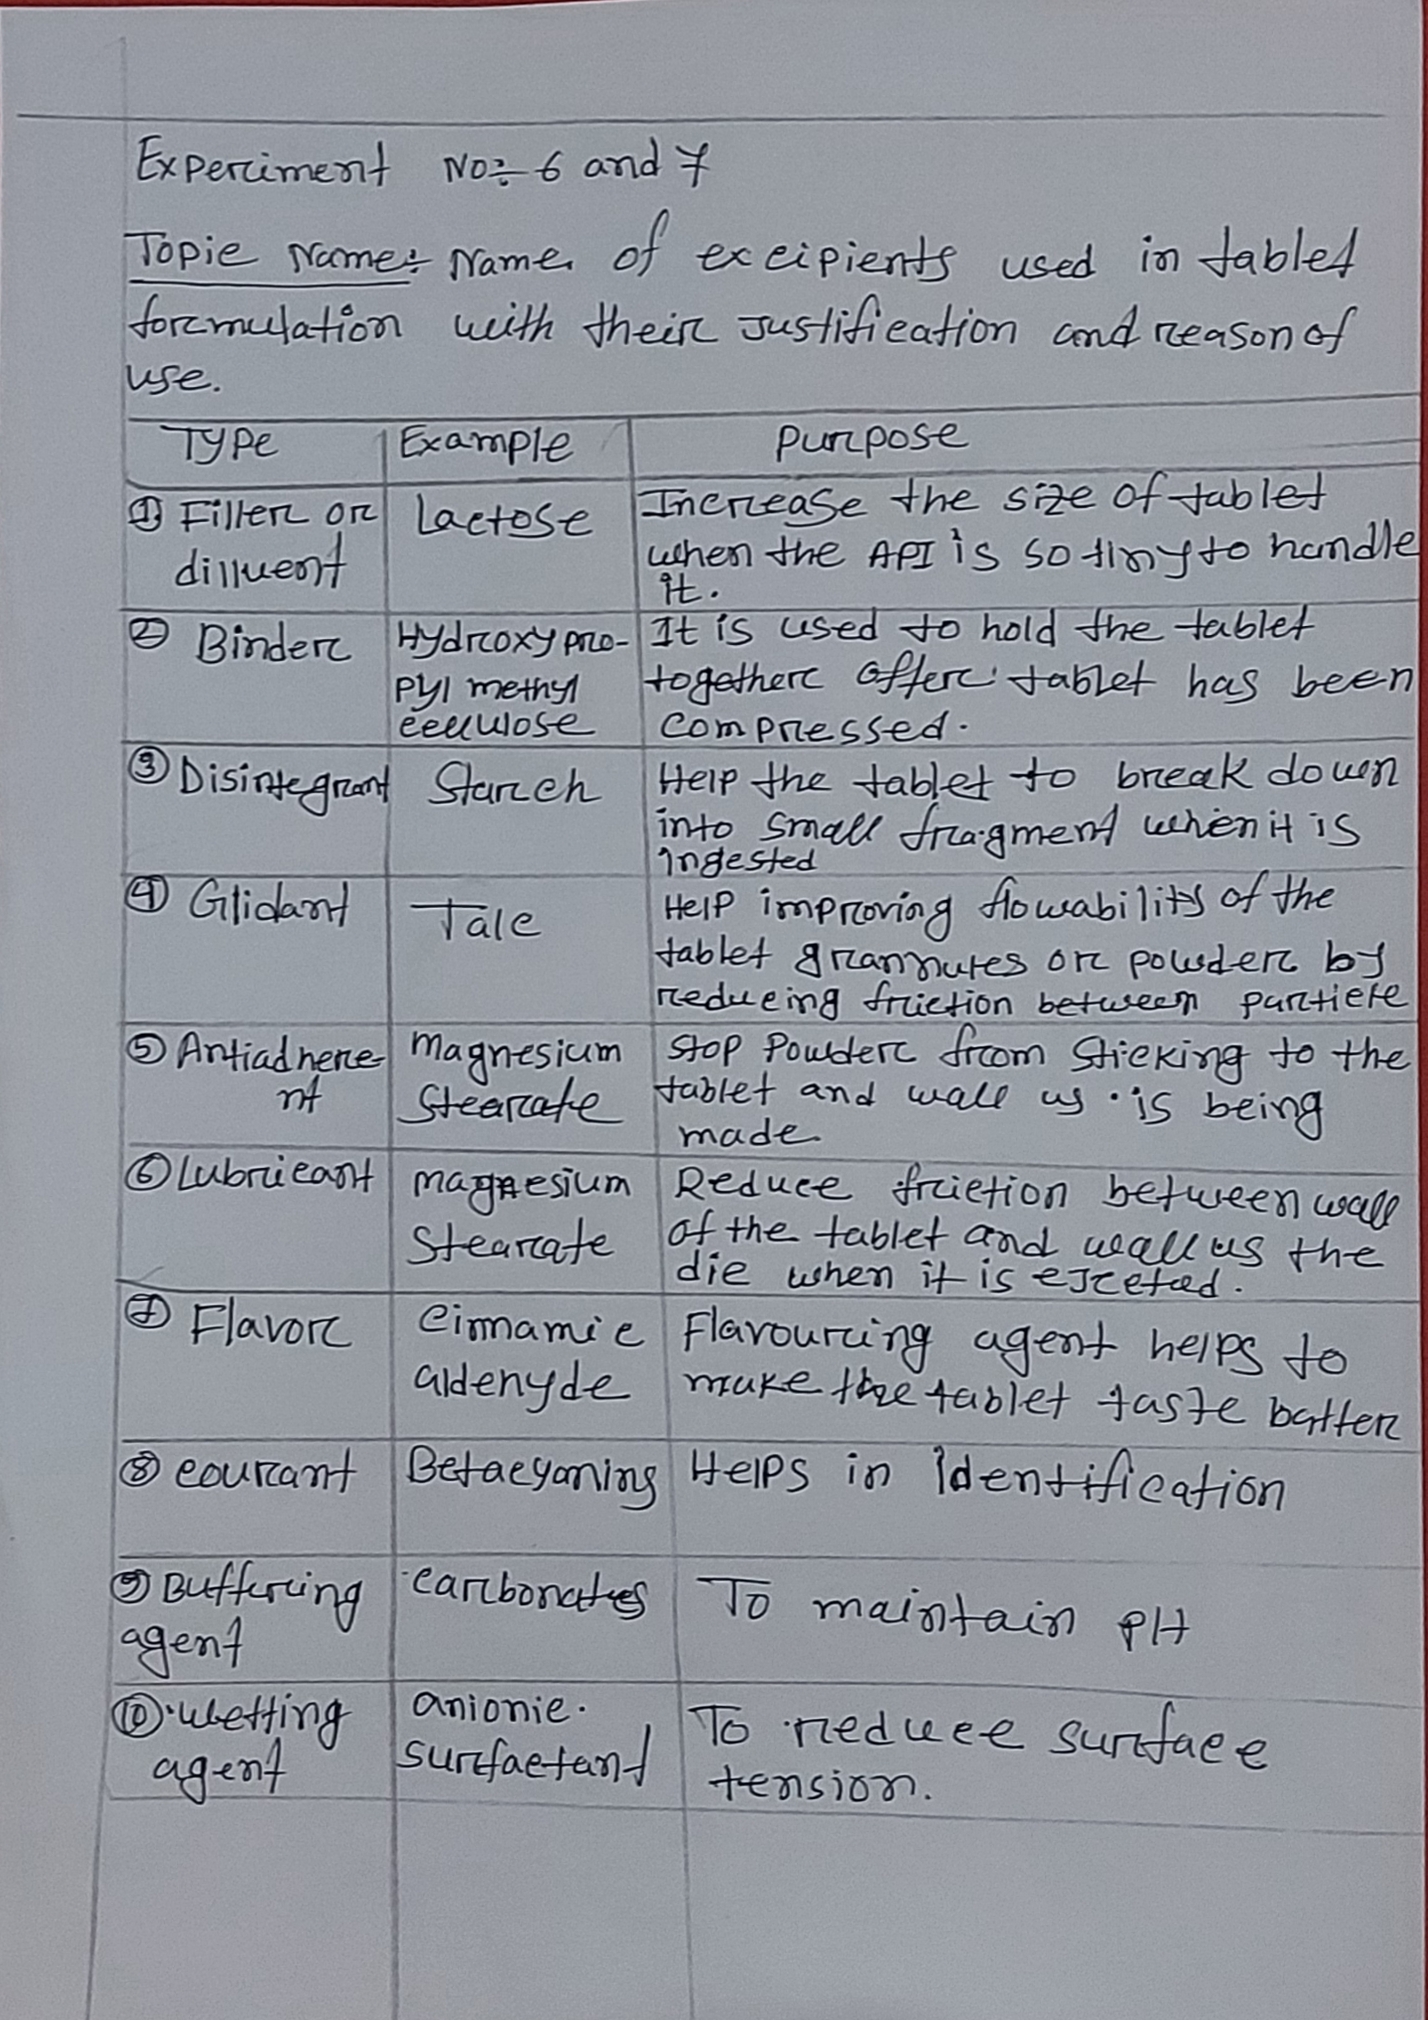 Experiment No:- 6 and 7
Topic Name:- Name of excipients used in tablet
formulation with their Justification and reason of
use.
Type Example Purpose
① Filler or Lactose Increase the size of tablet
dilluent when the API is so tiny to handle
it.
② Binder Hydroxypro- It is used to hold the tablet
pyl methyl together after tablet has been
cellulose compressed.
③ Disintegrant Starch Help the tablet to break down
into small fragment when it is
ingested
④ Glidant Talc Help improving flowability of the
tablet grannules or powder by
reducing friction between particle
⑤ Antiadhere- Magnesium Stop Powder from Sticking to the
nt Stearate tablet and wall as is being
made
⑥ Lubricant magnesium Reduce friction between wall
Stearate of the tablet and wall us the
die when it is ejceted.
⑦ Flavor Cinnamic Flavouring agent helps to
aldehyde make the tablet taste batter
⑧ courant Betacyaning Helps in Identification
⑨ Buffering carbonates To maintain PH
agent
⑩ wetting anionic. To reduce surface
agent surfactant tension.